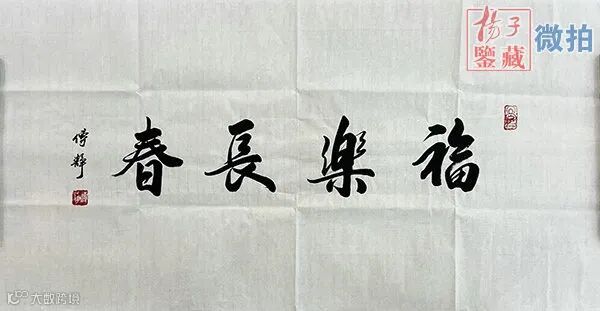 福樂長春
傅靜
楊子
鑒藏
微拍
大数跨境